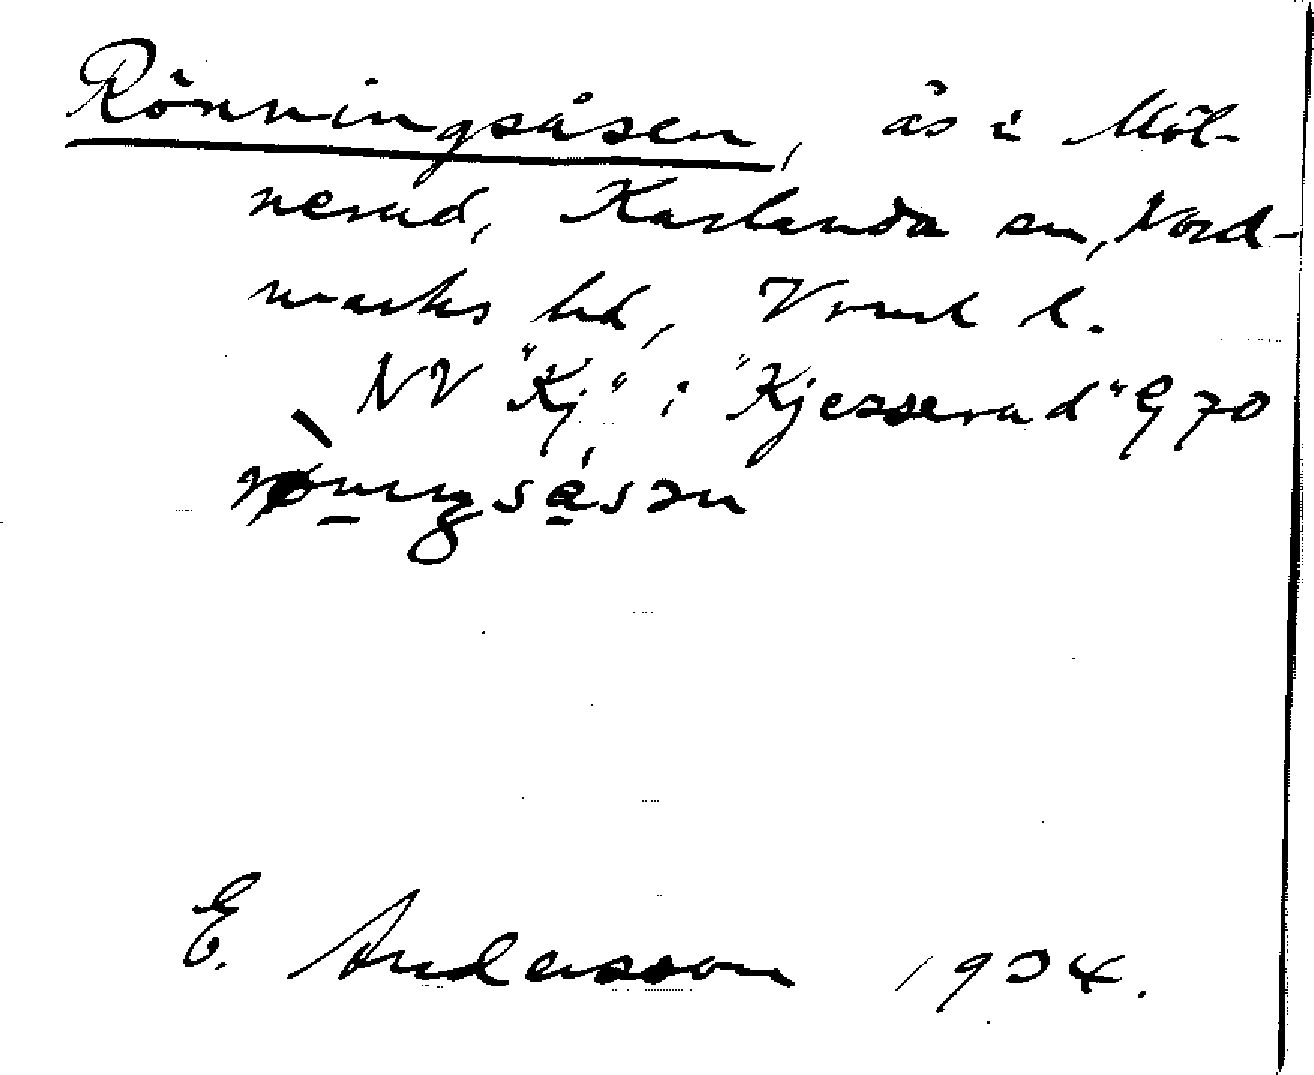 Rönningsåsen, ås i Möl-
nerud, Karlanda sn, Nord-
marks hd, Vrml l.
NV "Kj" i "Kjesserud" G 70
E. Andersson 1934.